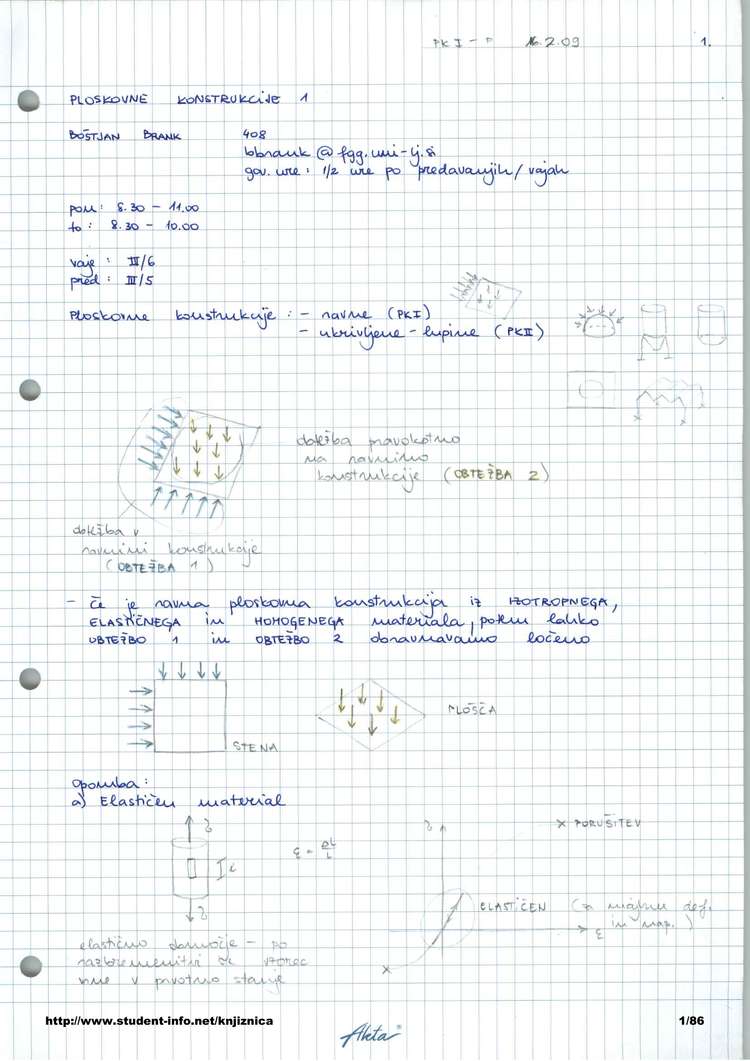 PK I - P 16.2.09 1.
PLOSKOVNE KONSTRUKCIJE 1
BOŠTJAN BRANK 408
bbrank @ fgg.uni-lj.si
gov. ure: 1/2 ure po predavanjih / vajah
pon: 8.30 - 11.00
to: 8.30 - 10.00
vaje: III/6
pred: III/5
Ploskovne konstrukcije: - ravne (PKI)
- ukrivljene - lupine (PKII)
pravokotno
na ravnino
konstrukcije (OBTEŽBA 2)
v
ravnini konstrukcije
(OBTEŽBA 1)
- če je ravna ploskovna konstrukcija iz IZOTROPNEGA,
ELASTIČNEGA in HOMOGENEGA materiala, potem lahko
OBTEŽBO 1 in OBTEŽBO 2 obravnavamo ločeno
STENA
PLOŠČA
opomba:
a) Elastičen material
× PORUŠITEV
ELASTIČEN (za def.
in nap.)
ε
elastično območje - po
razbremenitvi se vzorec
v prvotno stanje
http://www.student-info.net/knjiznica
Akta
1/86